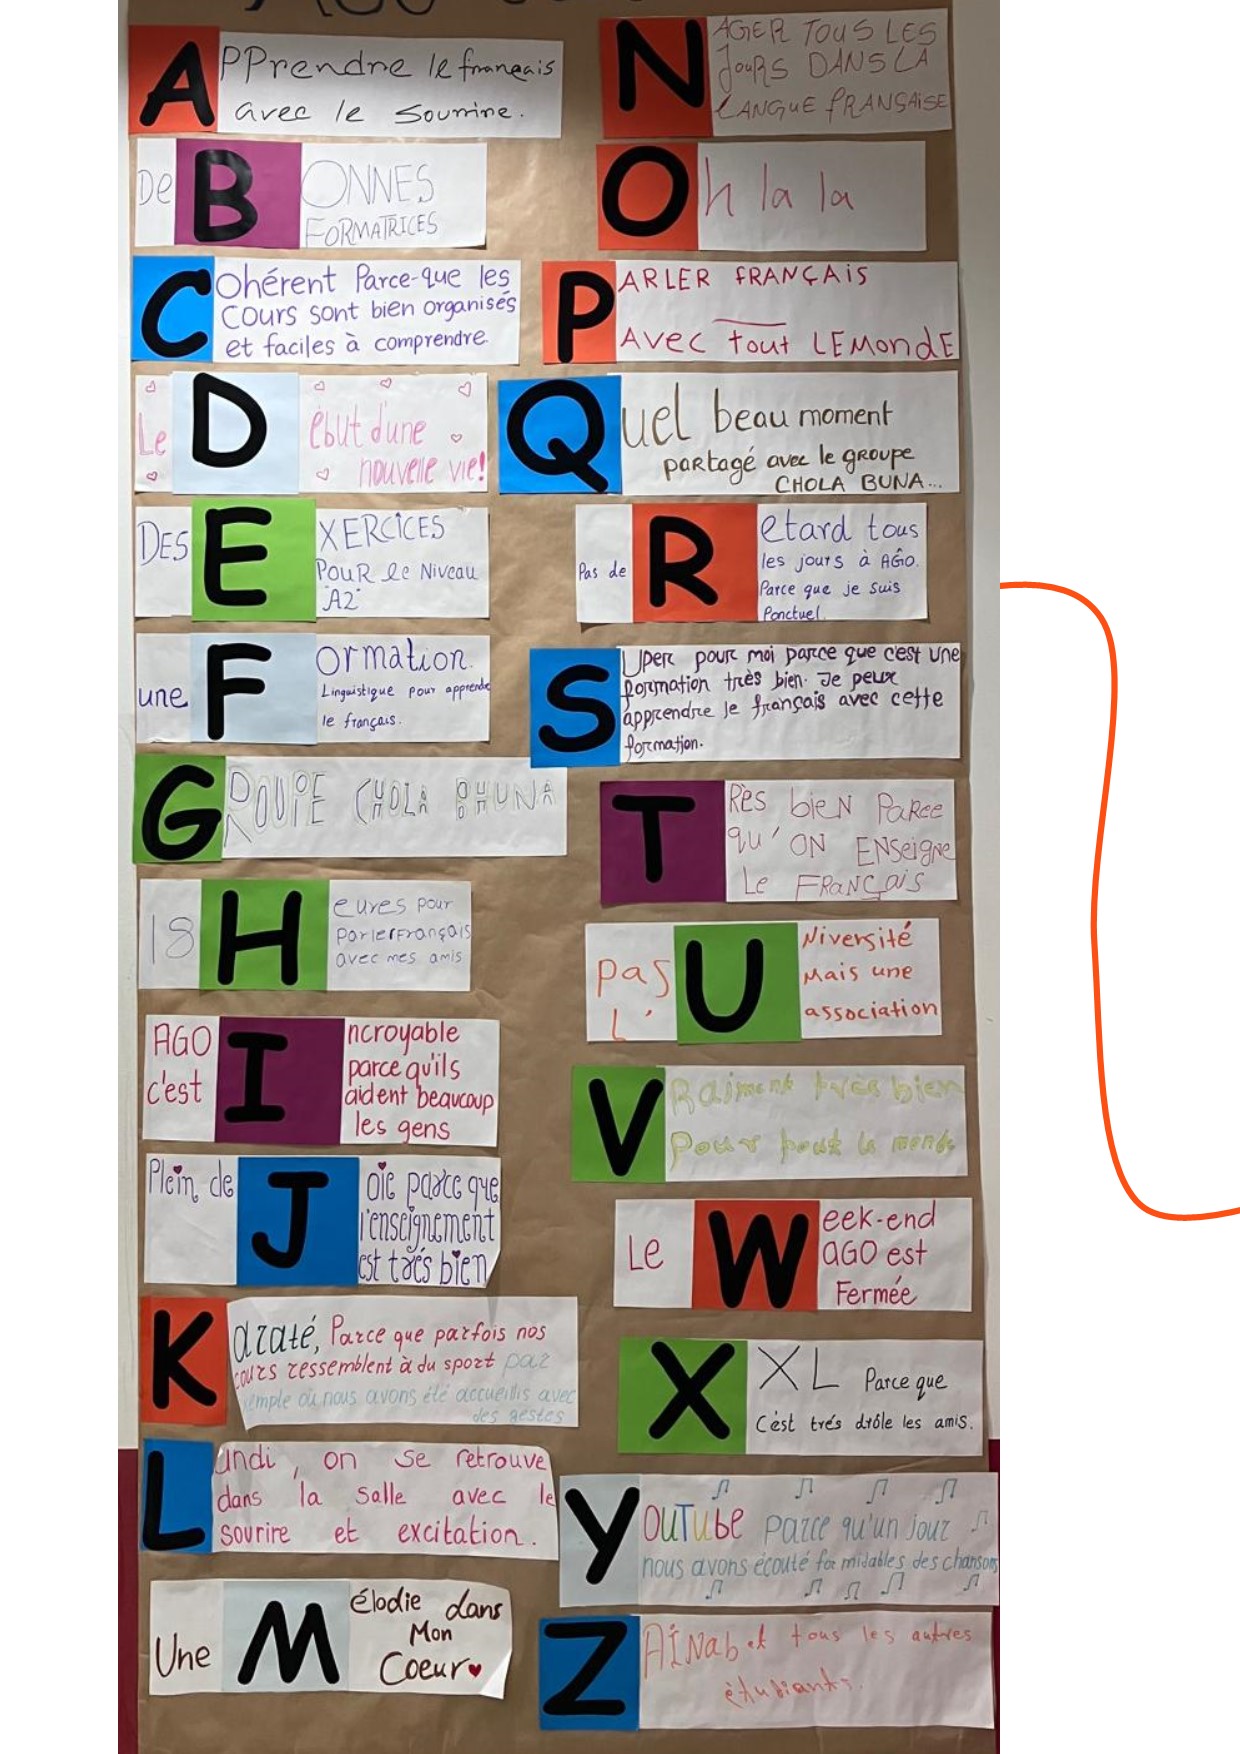 APPrendre le français
avec le sourire.
De BONNES
FORMATRICES
Cohérent Parce-que les
cours sont bien organisés
et faciles à comprendre.
Le Début d'une
nouvelle vie!
DES EXERCICES
POUR le Niveau
"A2"
une Formation.
Linguistique pour apprendre
le français.
GROUPE CHOLA BHUNA
18 Heures pour
parler français
avec mes amis
AGO
c'est Incroyable
parce qu'ils
aident beaucoup
les gens
Plein de Joie parce que
l'enseignement
est trés bien
Karaté, Parce que parfois nos
cours ressemblent à du sport par
emple où nous avons été accueillis avec
des gestes
Lundi, on se retrouve
dans la salle avec le
sourire et excitation.
Une Mélodie dans
Mon
Coeur
NAGER TOUS LES
JOURS DANS LA
LANGUE FRANÇAISE
Oh la la
PARLER FRANÇAIS
AVEC Tout LE MondE
Quel beau moment
partagé avec le groupe
CHOLA BUNA...
Pas de Retard tous
les jours à AGO.
Parce que je suis
Ponctuel.
SUper pour moi parce que c'est une
formation très bien. Je peux
apprendre le français avec cette
formation.
TRès bien Parce
qu'ON ENSeigne
Le FRANÇais
pas
L' UNiversité
Mais une
association
VRaiment très bien
Pour tout le monde
Le Week-end
AGO est
Fermée
X XL Parce que
C'est trés drôle les amis.
YOUTUbe parce qu'un jour
nous avons écouté formidables des chansons
ZAÏNab et tous les autres
étudiants.